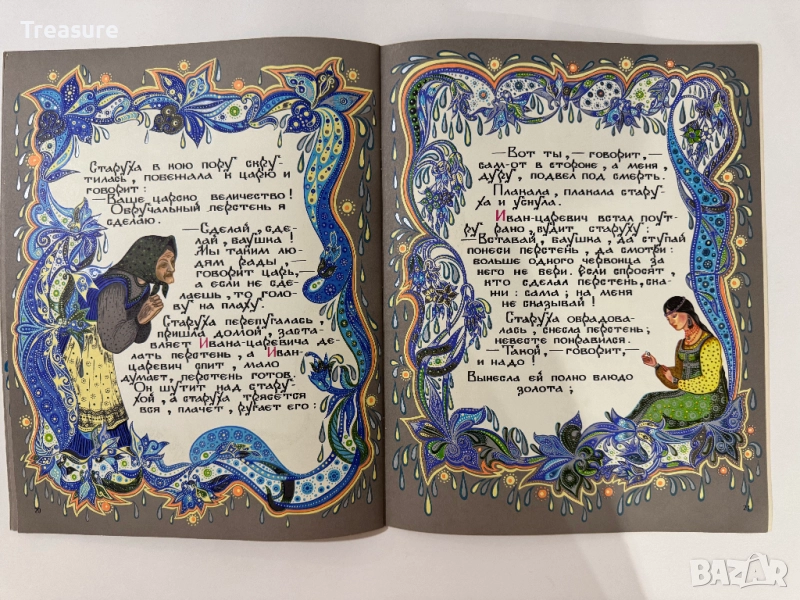 Treasure
Старуха в кою пору скру-
тилась, побежала к царю и
говорит:
—Ваше царско величество!
Обручальный перстень я
сделаю.
—Сделай, сде-
лай, баушка!
Мы таким лю-
дям рады,—
говорит царь,—
а если не сде-
лаешь, то голо-
ву на плаху.
Старуха перепугалась,
пришла домой, застав-
ляет Ивана-царевича де-
лать перстень, а Иван-
царевич спит, мало
думает, перстень готов.
Он шутит над стару-
хой, а старуха трясется
вся, плачет, ругает его:
—Вот ты,—говорит,—
сам-от в стороне, а меня,
дуру, подвел под смерть.
Плакала, плакала стару-
ха и уснула.
Иван-царевич встал поут-
ру рано, будит старуху:
—Вставай, баушка, да ступай
понеси перстень, да смотри:
больше одного червонца за
него не бери. Если спросят,
кто сделал перстень, ска-
жи: сама; на меня
не сказывай!
Старуха обрадова-
лась, снесла перстень;
невесте понравился.
—Такой,—говорит,—
и надо!
Вынесла ей полно блюдо
золота;
BAZAR